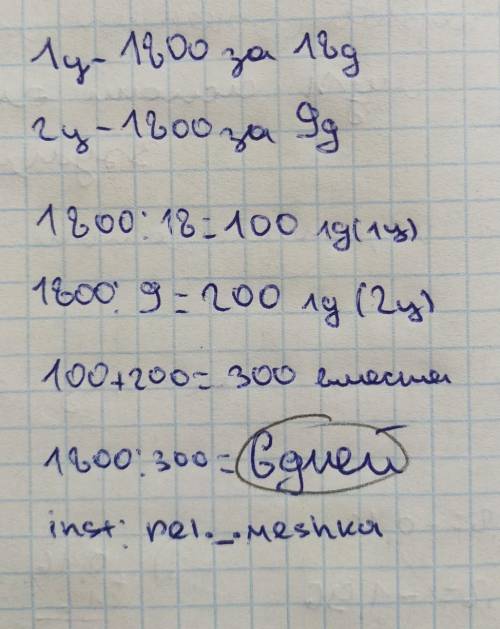 1ц - 1800 за 18д
2ц - 1800 за 9д
1800 : 18 = 100 1д (1ц)
1800 : 9 = 200 1д (2ц)
100 + 200 = 300 вместе
1800 : 300 = 6 дней
inst: pel._.meshka